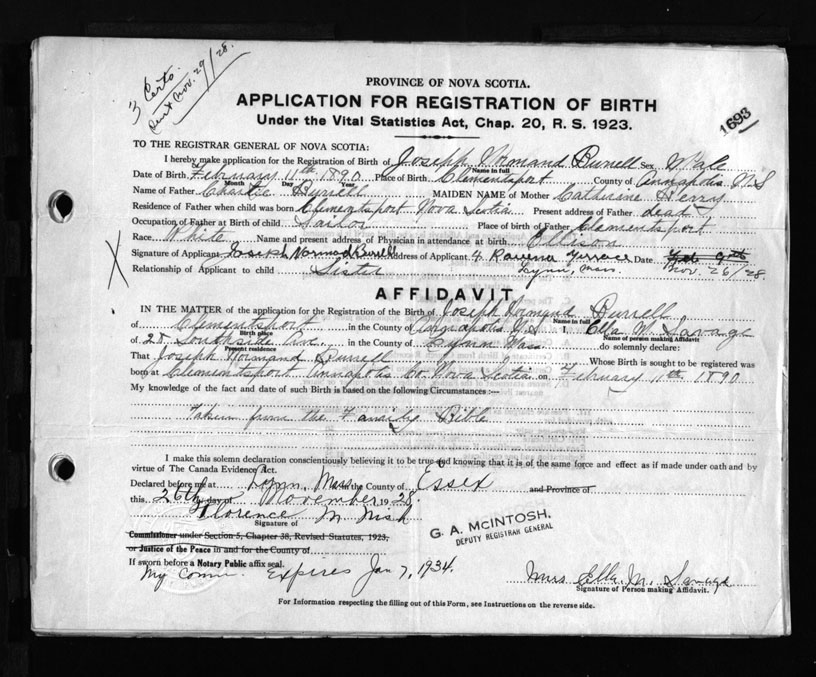 3 Certs.
Sent Nov. 29/28.
PROVINCE OF NOVA SCOTIA.
APPLICATION FOR REGISTRATION OF BIRTH
Under the Vital Statistics Act, Chap. 20, R. S. 1923.
1693
TO THE REGISTRAR GENERAL OF NOVA SCOTIA:
I hereby make application for the Registration of Birth of Joseph Normand Burrell Sex Male
Name in full
Date of Birth February 11th 1890 Place of Birth Clementsport County of Annapolis N.S
Month Day Year
Name of Father Charlie Burrell MAIDEN NAME of Mother Catherine Berry
Residence of Father when child was born Clementsport Nova Scotia Present address of Father dead
Occupation of Father at Birth of child Sailor Place of birth of Father Clementsport
Race White Name and present address of Physician in attendance at birth Ellison
X
Signature of Applicant Joseph Normand Burrell Address of Applicant 4 Ravena Terrace Date Nov. 26/28.
Lynn, Mass.
Relationship of Applicant to child Sister
AFFIDAVIT
IN THE MATTER of the application for the Registration of the Birth of Joseph Normand Burrell
Name in full
of Clementsport in the County of Annapolis N.S I, Ella M. Savage
Birth place
Name of person making Affidavit
of 28 Southside Ave in the County of Lynn Mass do solemnly declare:
Present residence
That Joseph Normand Burrell Whose Birth is sought to be registered was
born at Clementsport Annapolis Co Nova Scotia on February 11th 1890
My knowledge of the fact and date of such Birth is based on the following Circumstances:—
Taken from the Family Bible
I make this solemn declaration conscientiously believing it to be true and knowing that it is of the same force and effect as if made under oath and by
virtue of The Canada Evidence Act.
Declared before me at Lynn, Mass in the County of Essex and Province of
this 26th day of November 1928.
Florence M. Nish
Signature of
G. A. McINTOSH.
DEPUTY REGISTRAR GENERAL
Commissioner under Section 5, Chapter 38, Revised Statutes, 1923,
or Justice of the Peace in and for the County of
If sworn before a Notary Public affix seal.
My Comm. Expires Jan 7, 1934.
Mrs Ella M. Savage
Signature of Person making Affidavit.
For Information respecting the filling out of this Form, see Instructions on the reverse side.